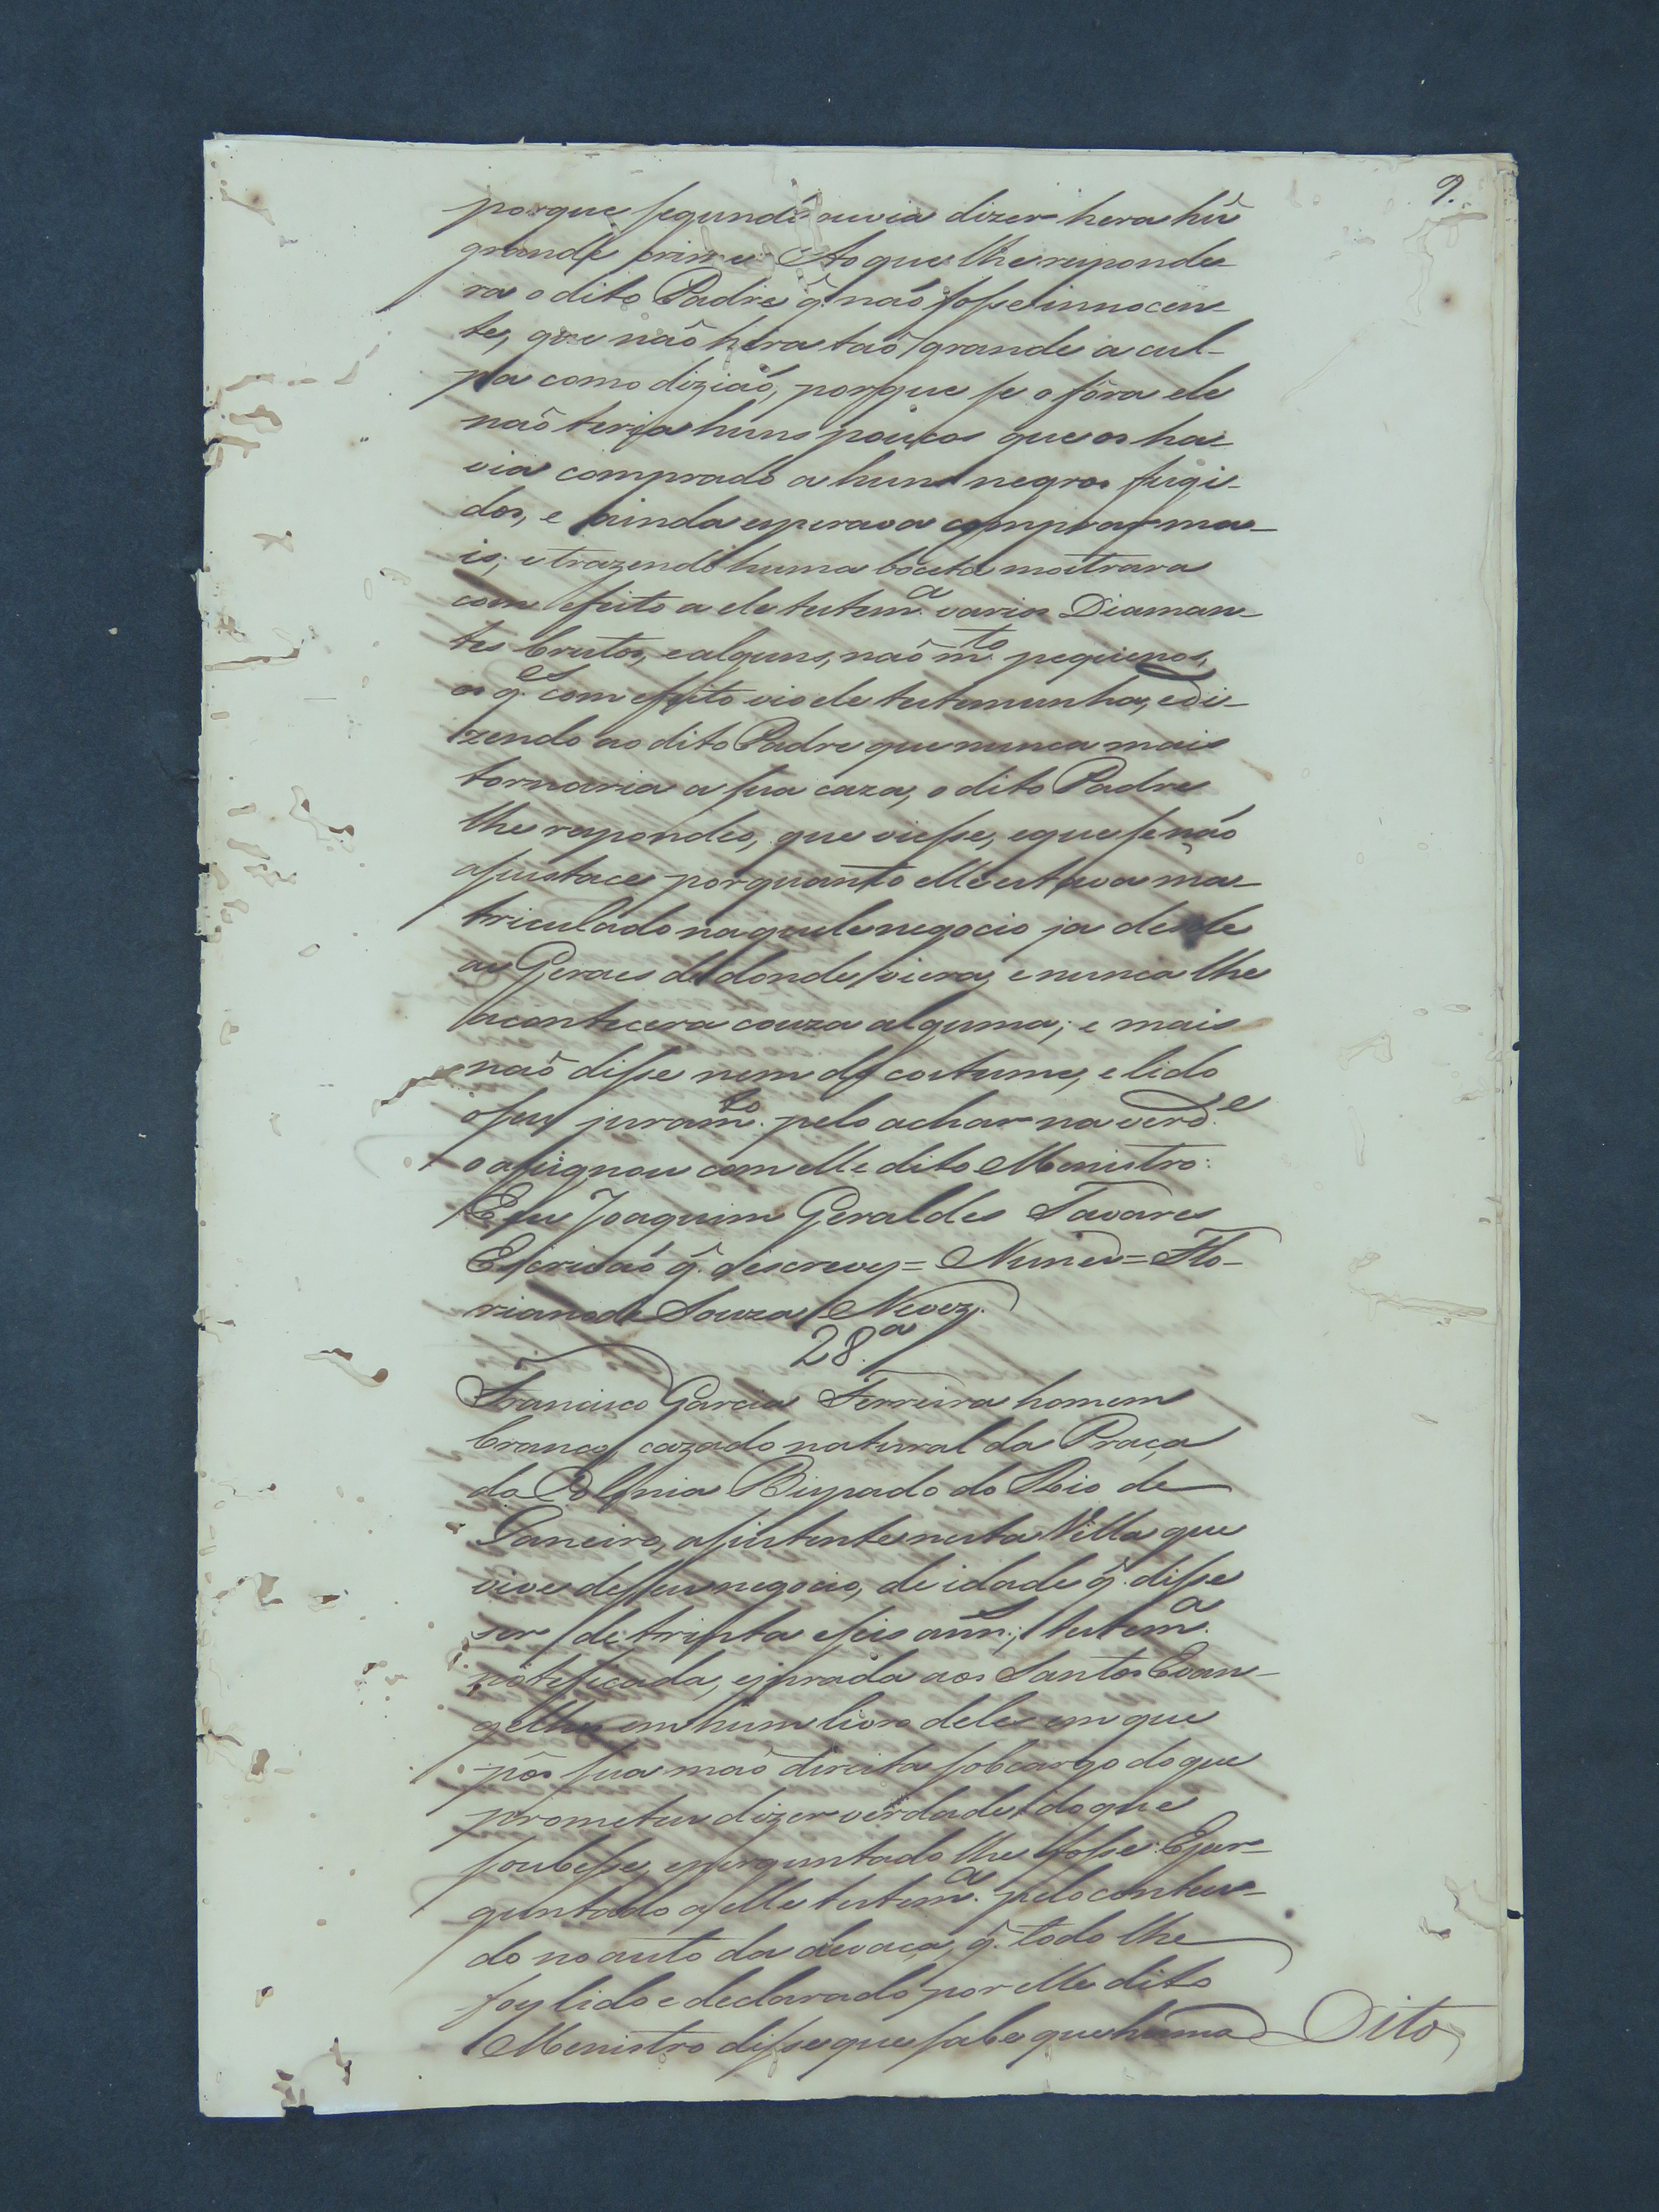 9.
porque segundo ouvia dizer hera hũ
grande crime Ao que lhe responde-
ra o dito Padre q̃. não fosse innocen-
te, que não hera taõ grande a cul-
pa como diziaõ, porque se o fôra ele
naõ teria huns poucos que os ha-
via comprado a huns negros fugi-
dos, e ainda esperava comprar ma-
is; e trazendo huma boceta mostrara
com efeito a ele testem.ª varios Diaman-
tes brutos, e alguns, naõ m.to pequenos,
os q.es com efeito vio ele testemunha, e di-
zendo ao dito Padre que nunca mais
tornaria a sua caza, o dito Padre
lhe respondeo, que viesse, e que se não
asustace porquanto elle estava ma-
triculado naquele negocio ja desde
as Geraes de donde viera, e nunca lhe
acontecera couza alguma; e mais
naõ disse nem do costume, e lido
o seu juram.to pelo achar na verd.e
o assignou com elle dito Menistro:
E eu Joaquim Geraldes Tavares
Escrivaõ q̃. o escrevy = Nunes = Flo-
riano de Souza Nevez.
28.ª
Francisco Garcia Ferreira homem
branco, cazado natural da Praça
da Colonia Bispado do Rio de
Janeiro, assistente nesta Villa que
vive de seu negocio, de idade q̃. disse
ser de trinta e seis ann.s, testem.ª
notificada, e jurada aos Santos Evan-
gelhos em hum livro deles em que
pôs sua maõ direita sob cargo do que
prometeu dizer verdade do que
soubesse, e perguntado lhe fosse: E per-
guntado a elle testem.ª pelo conteu-
do no auto da devaça, q̃. todo lhe
foy lido e declarado por elle dito
Menistro disse que sabe que huma
Dito